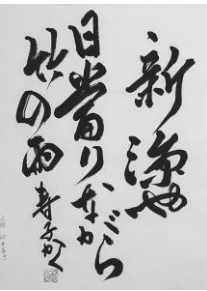 新涼や
日当りながら
竹の雨
寿子かく